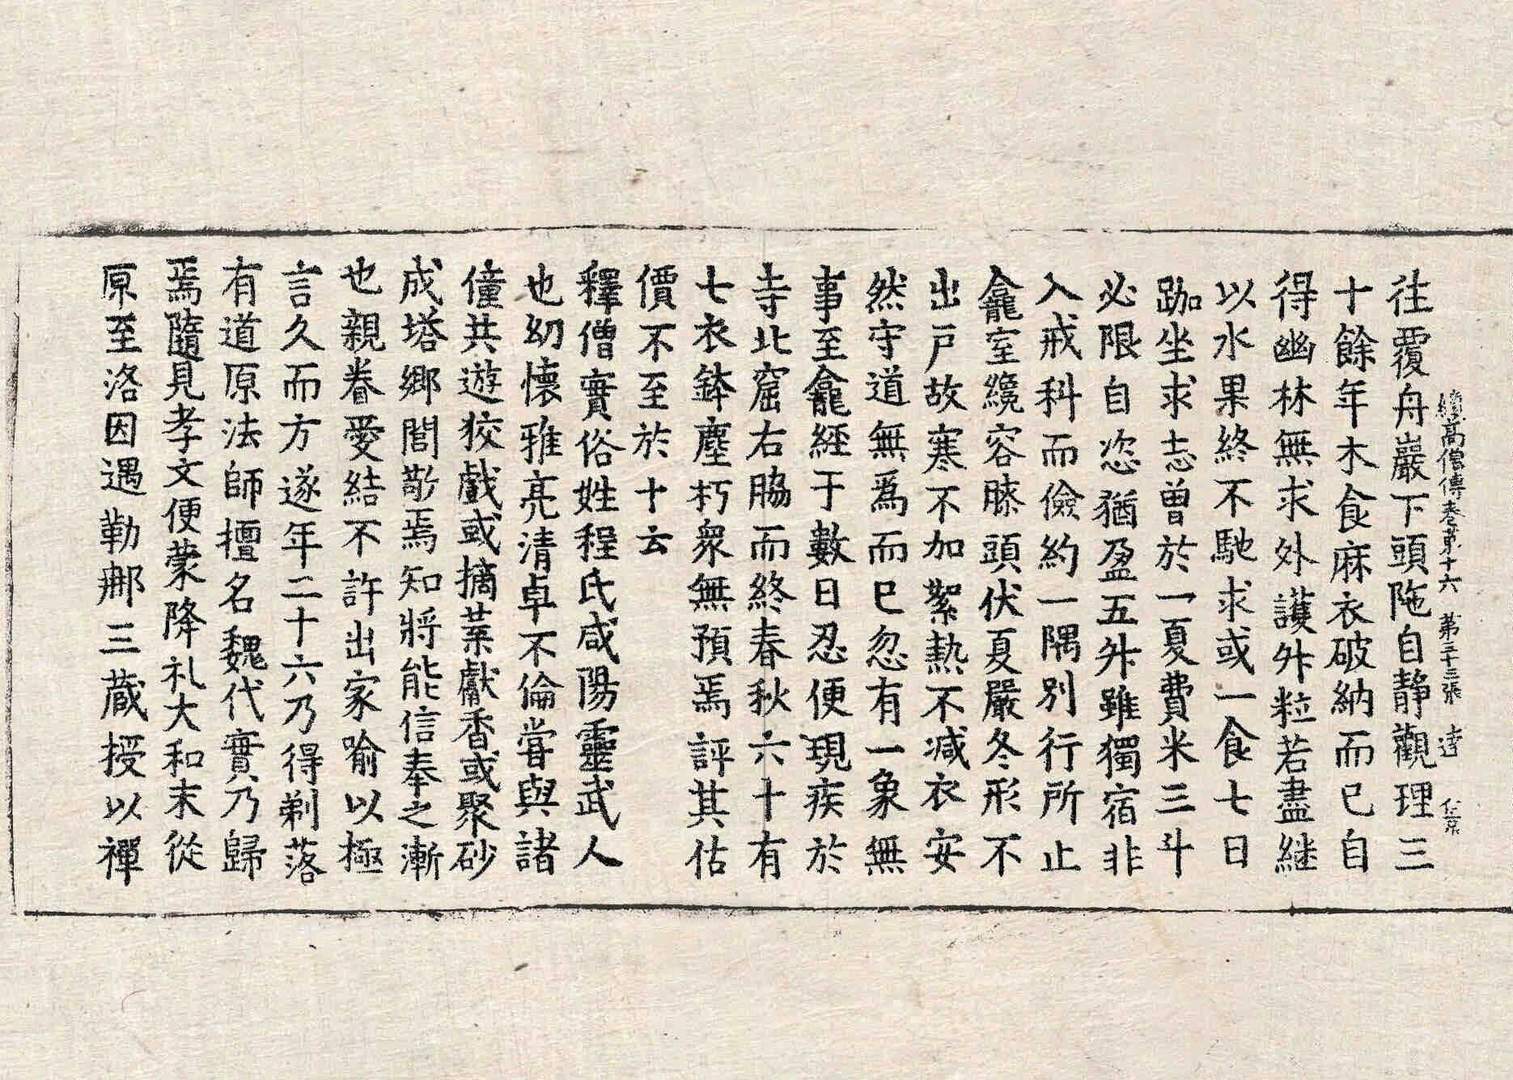 續高僧傳卷第十六 第三十三張 達
往覆舟巖下頭陁自静觀理三
十餘年木食麻衣破納而已自
得幽林無求外護外粒若盡継
以水果終不馳求或一食七日
跏坐求志曽於一夏費米三斗
必限自恣猶盈五外雖獨宿非
入戒科而儉約一隅別行所止
龕室纔容膝頭伏夏嚴冬形不
出戸故寒不加絮熱不减衣安
然守道無爲而已忽有一象無
事至龕經于數日忍便現疾於
寺北窟右脇而終春秋六十有
七衣鉢塵朽衆無預焉評其估
價不至於十云
釋僧實俗姓程氏咸陽靈武人
也幼懷雅亮清卓不倫甞與諸
僮共遊狡戲或摘葉獻香或聚砂
成塔鄉閭敬焉知將能信奉之漸
也親眷愛結不許出家喻以極
言久而方遂年二十六乃得剃落
有道原法師擅名魏代實乃歸
焉隨見孝文便蒙降礼大和末從
原至洛因遇勒𨚗三蔵授以禪